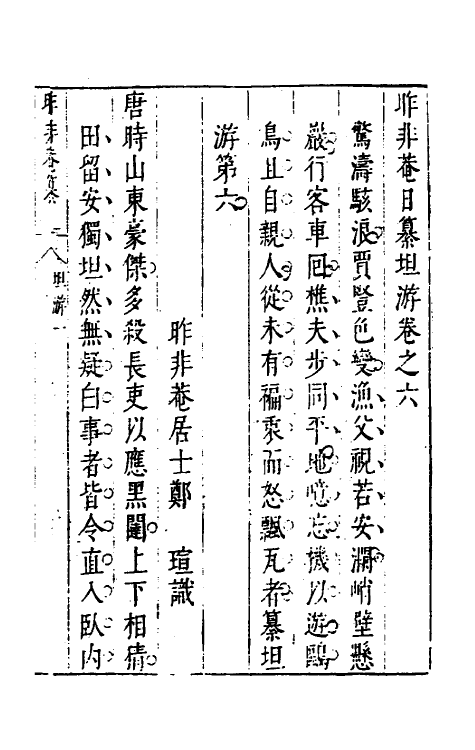 昨非菴日纂坦游卷之六
驚濤駭浪賈豎色變漁父視若安瀾峭壁懸
嚴行客車回樵夫步同平地噫忘機以遊鷗
鳥且自親人從未有褊衷而怒飄瓦者纂坦
游第六
昨非菴居士鄭　瑄識
唐時山東豪傑多殺長吏以應黑闥上下相猜
田留安獨坦然無疑白事者皆令直入臥內
昨非菴纂
二八
坦游一